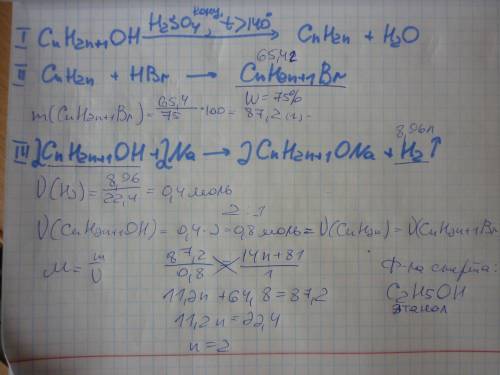 I CnH2n+1OH H2SO4 конц, t>140° → CnH2n + H2O
65,4г
II CnH2n + HBr → CnH2n+1Br
W = 75%
m(CnH2n+1Br) = 65,4/75 · 100 = 87,2 (г).
8,96л
III 2CnH2n+1OH + 2Na → 2CnH2n+1ONa + H2↑
ν(H2) = 8,96/22,4 = 0,4 моль
2 : 1
ν(CnH2n+1OH) = 0,4 · 2 = 0,8 моль = ν(CnH2n) = ν(CnH2n+1Br)
M = m/ν
87,2/0,8 14n+81/1
11,2n + 64,8 = 87,2
11,2n = 22,4
n = 2
Ф-ла спирта:
C2H5OH
этанол